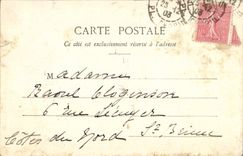 CARTE POSTALE
Ce côté est exclusivement réservé à l'adresse
Madame
Raoul Clogenson
6 rue
Côtes du Nord St. Brieuc